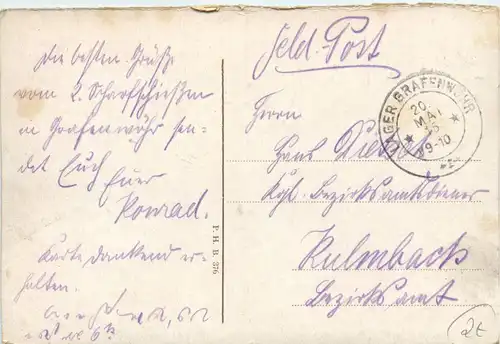 Die besten Grüße
vom 2. Scharfschießen
in Grafenwöhr sen-
det Euch Euer
Konrad.
Karte dankend er-
halten.
Feld-Post
LAGER GRAFENWÖHR
20.
MAI
9-10
Herrn
Hans
Kgl. Bezirksamtsdiener
Kulmbach
Bezirksamt
P. H. B. 376
2€